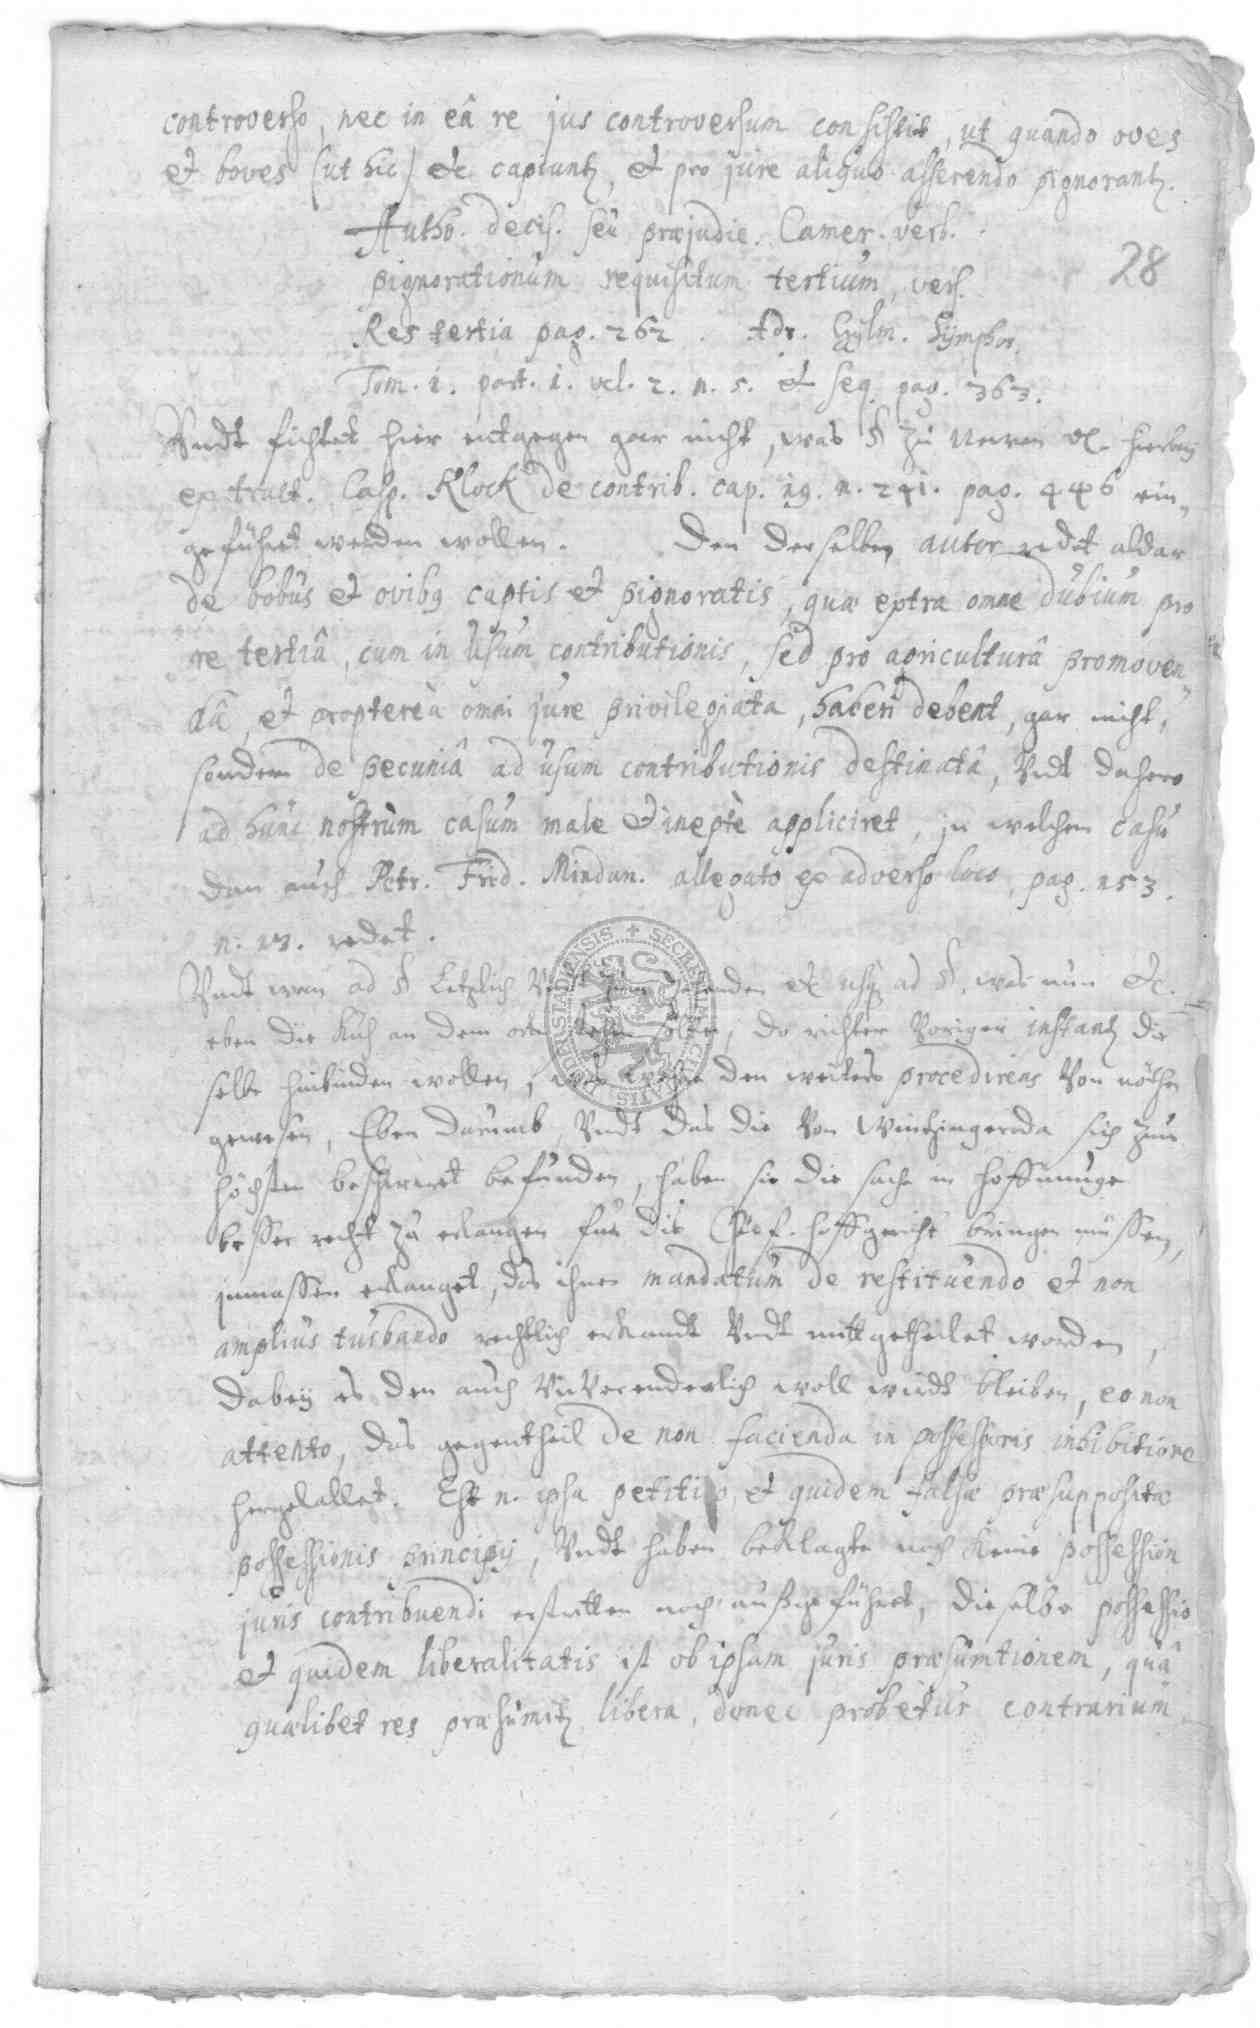 controverso, nec in eâ re jus controversum consistit, ut quando oves
et boves (ut hic) etc capiuntz, et pro jure aliquo asserendo pignorantz.
Autho. decis. seu præjudic. Camer. verb.
28
pignorationum requisitum tertium, vers.
Res tertia pag. 262. Adr. Gylm. Symphor.
Tom. 1. part. 1. vol. 2. n. 5. et seq. pag. 363.
Vndt fichtet hier entgegen gar nicht, was § zu etc. hierbey
extract. Casp. Klock de contrib. cap. 19. n. 241. pag. 446 ein„
geführet werden wollen. Den derselben autor redet aldar
de bobus et ovibq captis et pignoratis, quæ extra omne dubium pro
re tertiâ, cum in usum contributionis, sed pro agriculturâ promoven„
dâ, et proptereà omni jure privilegiata, haberi debent, gar nicht,
sondern de pecuniâ ad usum contributionis destinatâ, Vndt dahero
ad hunc nostrum casum male et ineptè appliciret, in welchen casu
dan auch Petr. Frid. Mindan. allegato ex adverso loco, pag. 153.
n. 13. redet.
Vndt wan ad § Letzlich etc usq ad §. was nun etc.
eben die Kuh an dem orte, do richter Voriger instantz die
selbe hinbinden wollen, den weiters procedirens Von nöthen
gewesen, Eben darumb, Vndt das die Von Wintzingeroda sich zum
höchsten beschwert befunden, haben sie die sache in hoffnunge
besser recht zu erlangen für die Churf. Hoffgericht bringen müssen,
inmassen erlanget, das ihnen mandatum de restituendo et non
amplius turbando rechtlich erkandt Vndt mitt getheilet worden,
dabey es den auch VnVerenderlich woll wirdt bleiben, eo non
attento, das gegentheil de non facienda in possessoris inhibitione
hergelallet. Est n. ipsa petitio, et quidem falsæ præsuppositæ
possessionis principij, Vndt haben beklagte noch keine possession
juris contribuendi erstritten noch außgeführet, dieselbe possessio
et quidem liberalitatis ist ob ipsam juris præsumtionem, quâ
quælibet res præsumitz libera, donec probetur contrarium